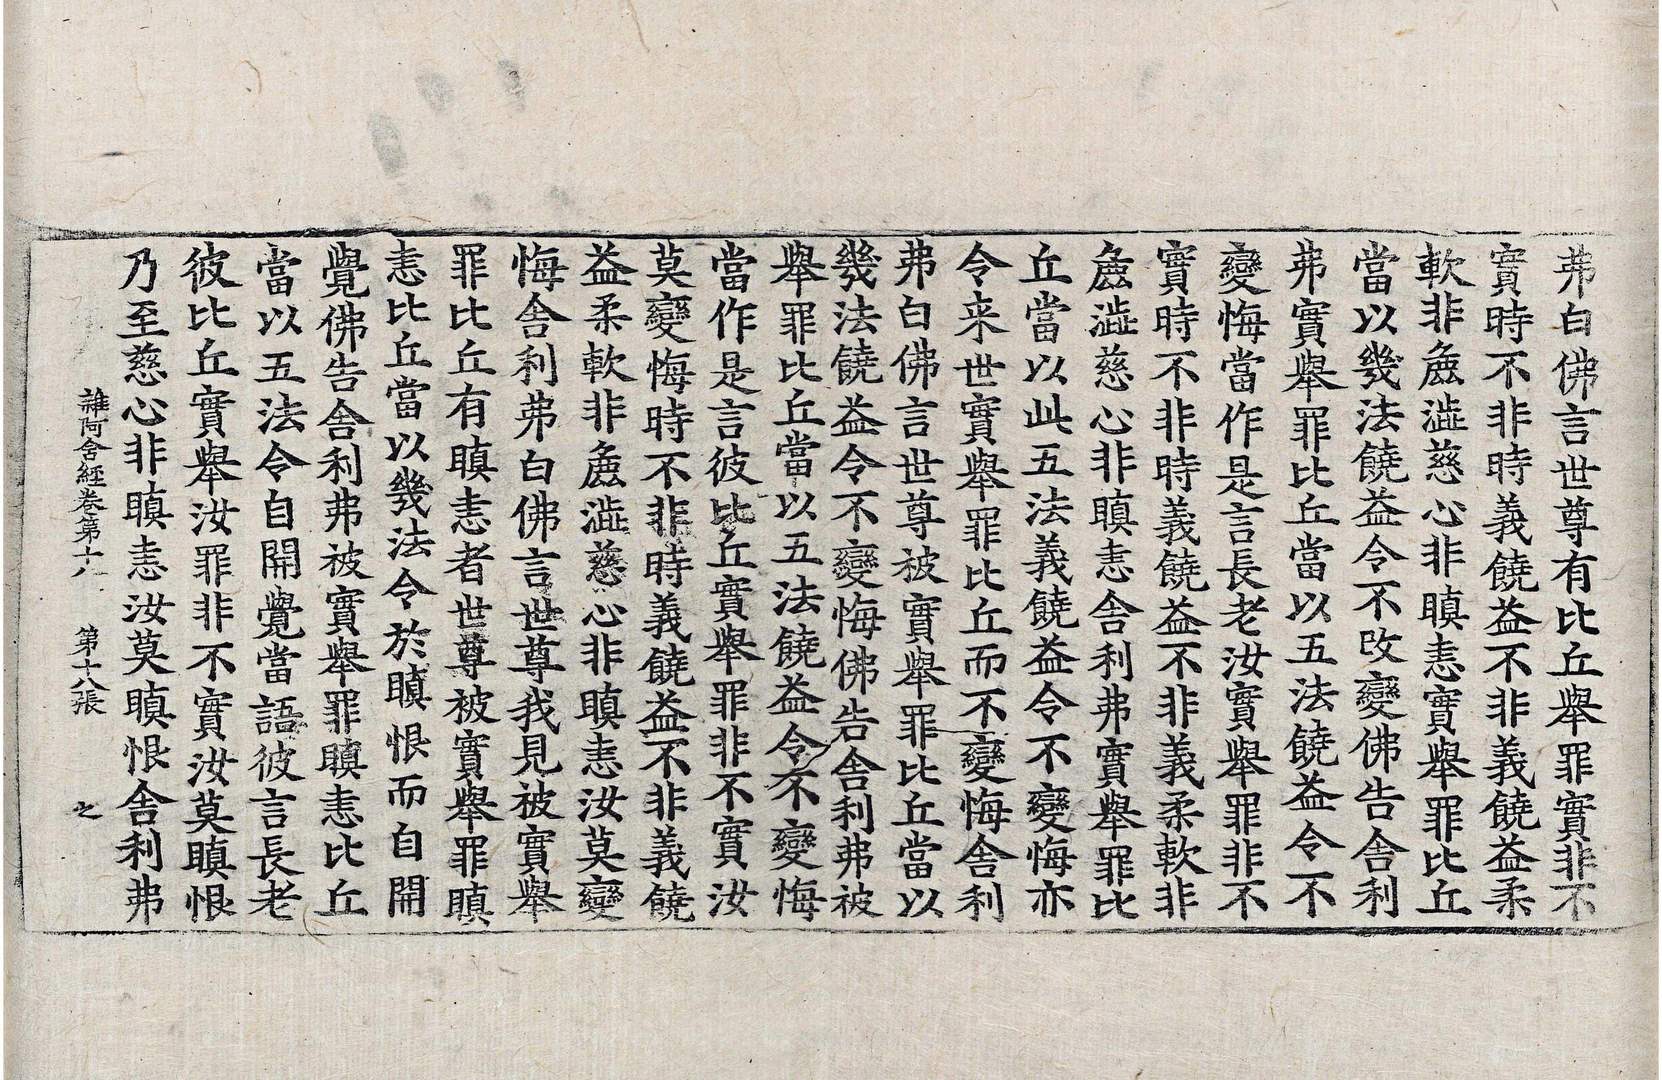 弗白佛言世尊有比丘舉罪實非不
實時不非時義饒益不非義饒益柔
軟非麁澁慈心非瞋恚實舉罪比丘
當以幾法饒益令不改變佛告舍利
弗實舉罪比丘當以五法饒益令不
變悔當作是言長老汝實舉罪非不
實時不非時義饒益不非義柔軟非
麁澁慈心非瞋恚舍利弗實舉罪比
丘當以此五法義饒益令不變悔亦
令来世實舉罪比丘而不變悔舍利
弗白佛言世尊被實舉罪比丘當以
幾法饒益令不變悔佛告舍利弗被
舉罪比丘當以五法饒益令不變悔
當作是言彼比丘實舉罪非不實汝
莫變悔時不非時義饒益不非義饒
益柔軟非麁澁慈心非瞋恚汝莫變
悔舍利弗白佛言世尊我見被實舉
罪比丘有瞋恚者世尊被實舉罪瞋
恚比丘當以幾法令於瞋恨而自開
覺佛告舍利弗被實舉罪瞋恚比丘
當以五法令自開覺當語彼言長老
彼比丘實舉汝罪非不實汝莫瞋恨
乃至慈心非瞋恚汝莫瞋恨舍利弗
雜阿含經卷第十八 第十八張 之